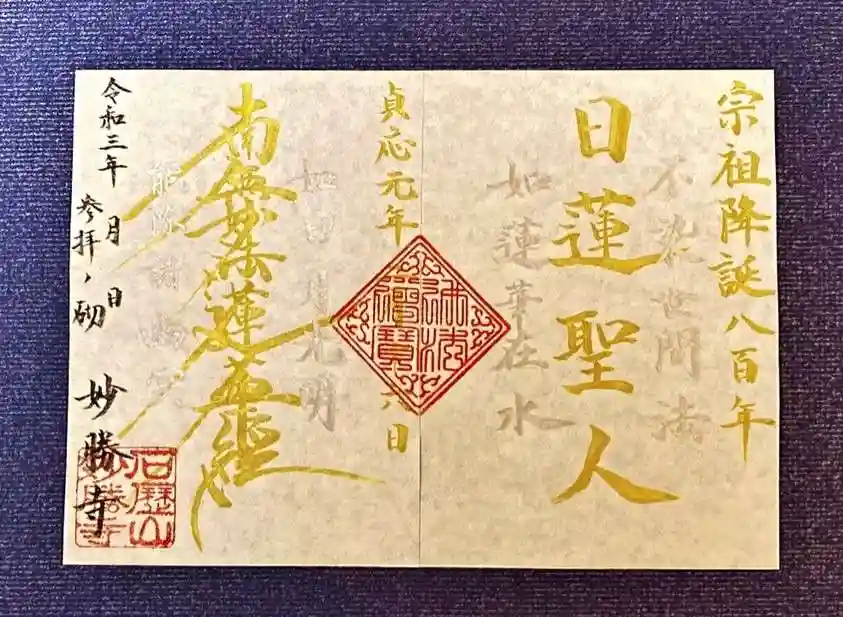 宗祖降誕八百年
不染世間法
日蓮聖人
如蓮華在水
貞応元年
六日
佛法僧寳
如日月光明
南無妙法蓮華経
能除諸幽冥
令和三年 月 日
参拝ノ砌
妙勝寺
石歴山
妙勝寺